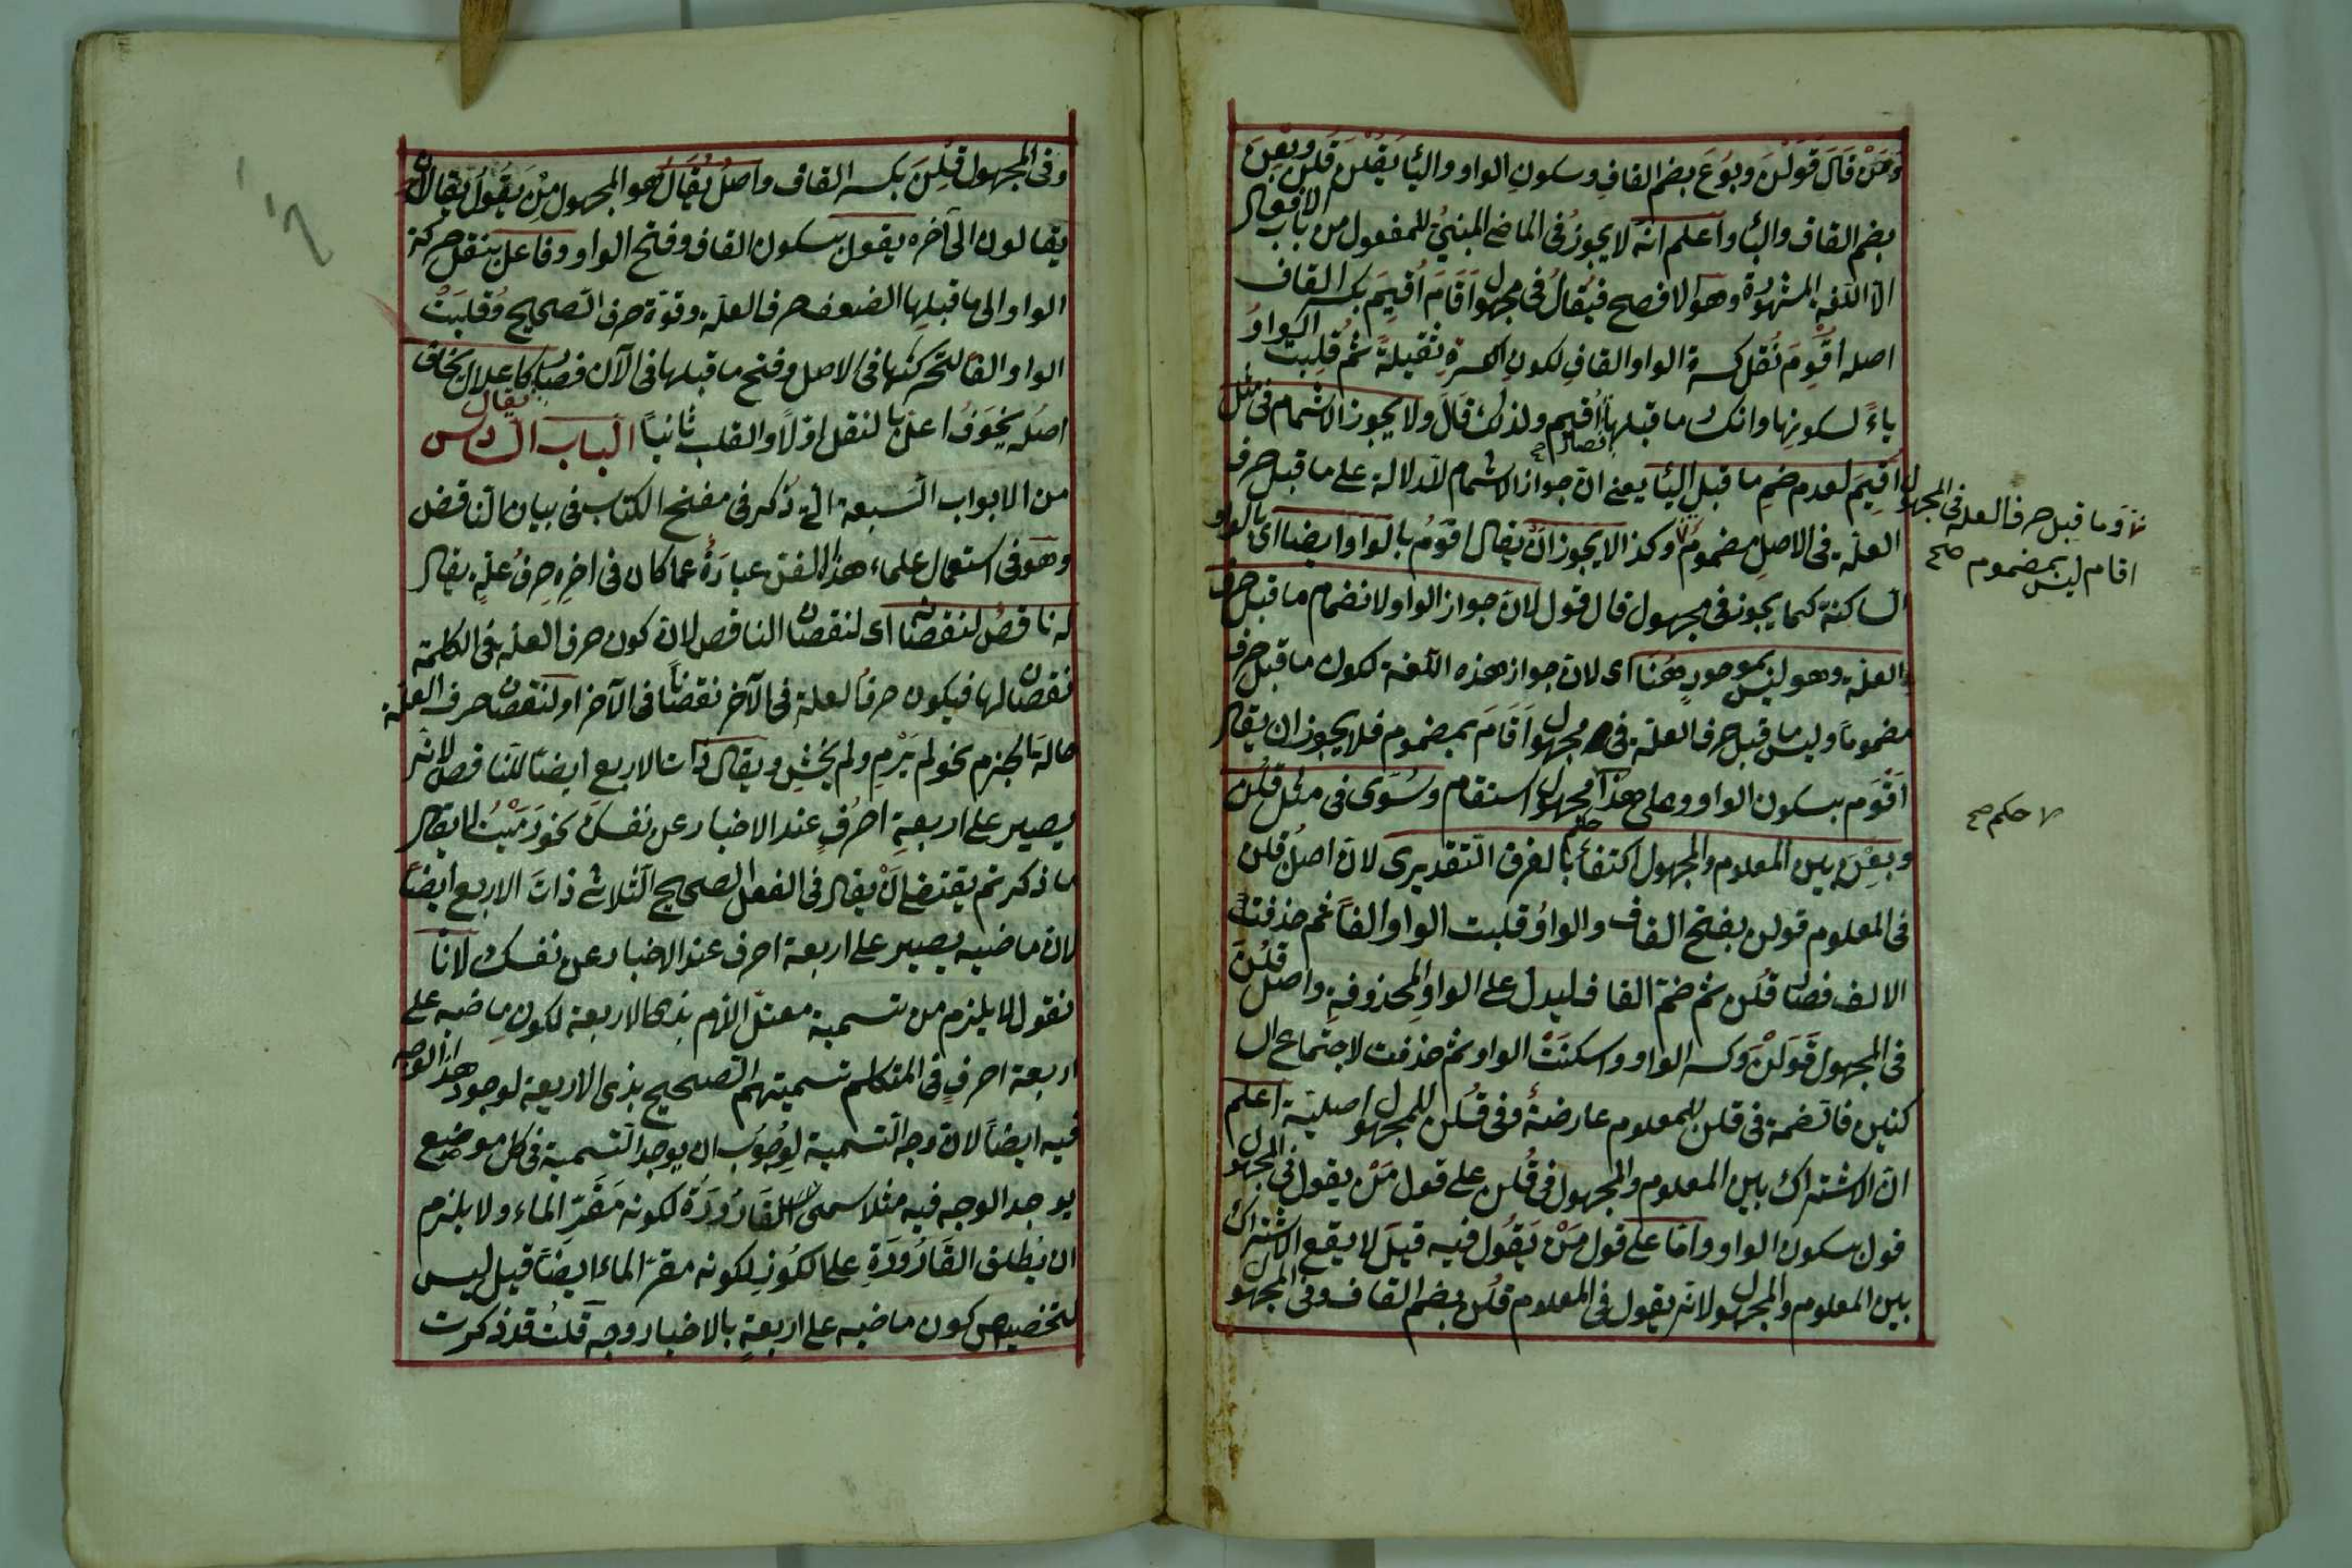 ومَنْ قالَ قَوْلَنَ وبُوعَ بضم القافِ وسكونِ الواو والياء يَقُلْنَ قُلن وبُعنَ
بضم القاف والباء واعلم انّه لا يجوزُ فى الماضى المبنيُ للمفعول من باب الافعال
الّا اللغة المشهُورة وهو الافصح فيُقالُ فى مجهول اَقَامَ اُقيمَ بكسر القاف
اصله اُقْوِمَ نُقل كسرة الواو القافِ لكونِ الكسرةِ ثقيلةً ثم قلِبت الواوُ
ياءً لسكونِها وانكسار ما قبلها فصار اُقيم ولذلك قَالَ ولا يجوز الاشمام فى مثل
اُقِيمَ لعدم ضمِ ما قبل الياء يعنى انّ جواز الاشمام للدلالة على ما قبل حرف
العلّة فى الاصل مضمومٌ وكذا لا يجوز انْ يقال اقوُم بالواو ايضا اى بالواو
الساكنة كما يجوز فى مجهول قال قول لانّ جواز الواو لانضمام ما قبل حرف
العلة وهو ليس بموجودٍ هُنَا اى لانّ جواز هذه اللّغة لكون ما قبل حرف
مضموماً وليس ما قبل حرف العلّة فى مجهول اَقَامَ بمضموم فلا يجوز ان يقال
اُقْوم بسكون الواو وعلى هذا مجهول استقام وسُوّى فى مثل قُلْن
وبِعْن بين المعلوم والمجهول اكتفاءً بالفرق التّقديرى لانّ اصل قلن
فى المعلوم قولن بفتح القاف والواوُ قلبت الواو الفاً ثم حذفت
الالف فصار قَلن ثم ضمّ القاف ليدل على الواوِ المحذوفةِ واصل قُلنَ
فى المجهول قَوَلْنَ وكسر الواو واسكنَتْ الواو ثم حذفت لاجتماع السا
كنين فالضمة فى قلن للمعلوم عارضةٌ وفى قُلن للمجهول اصليّة اعلم
انّ الاشتراك بين المعلوم والمجهول فى قُلن على قول مَنْ يقول فى المجهول
قول بسكون الواو وامّا على قول مَنْ يَقُول فيه قيلَ لا يقع الاشتراك
بين المعلوم والمجهول لانّه يقول فى المعلوم قُلن بضم القاف وفى المجهول
وما قبل حرف العلة فى المجهول
اقام ليس بمضموم صح
حكم صح
وفى المجهول قِلنَ بكسر القاف واصلُ يُقالُ هو المجهول مِنْ يَقُولُ يقالان
يقالون الى آخره يقول بسكون القاف وفتح الواو وفاعل بنقل حركة
الواو الى ما قبلها الضعف حرف العلة وقوّة حرف الصحيح وقُلبَتْ
الواو الفاً لتحركها فى الاصل وفتح ما قبلها فى الآن فصار يقال كاعلال يخاف
اصله يَخْوَفُ اعلّ بالنقل اوّلاً والقلب ثانياً الباب السادس
من الابواب السّبعة التى ذُكر فى مفتح الكتاب فى بيان الناقص
وهو فى استعمال علماء هذا الفن عبارةٌ عما كان فى اخرِه حرفُ علّةٍ يقال
له ناقصٌ لنقصانه اى لنقصان الناقص لانّ كون حرف العلّة فى الكلمة
نقصان لها فيكون حرفُ العلة فى الآخر نقصاناً فى الآخر او لنقصان حرف العلّة
حالة الجزم نحو لم يَرْمِ ولم يخْشِ ويقال ذات الاربع ايضاً للناقص لانّه
يصير على اربعةِ احرُفٍ عند الاخبار عن نفسك نحو رَمَيْتُ لا يقال
ما ذكرتم يقتضى انْ يقال فى الفعل الصحيح الثّلاثى ذاتَ الاربع ايضاً
لان ماضيه يصير على اربعة احرف عند الاخبار عن نفسك لانّا
نقول لا يلزم من تسمية معتلّ اللّام بذى الاربعة لكونِ ماضيه على
اربعة احرفٍ فى المتكلم تسميتهم الصحيح بذى الاربعة لوجود هذا الوجه
فيه ايضاً لانّ وجه التّسمية لِوُجُوبِ ان يوجد التّسمية فى كل موضع
يوجد الوجه فيه مثلا سمى القَارُورَةُ لكونه مَقَرّ الماء ولا يلزم
ان يُطلق القَارُورَةِ على الكُوزِ لكونه مقرّ الماء ايضاً قيل ليس
لتخصيص كون ماضيه على اربعةٍ بالاخبار وجه قلتُ قد ذكرت